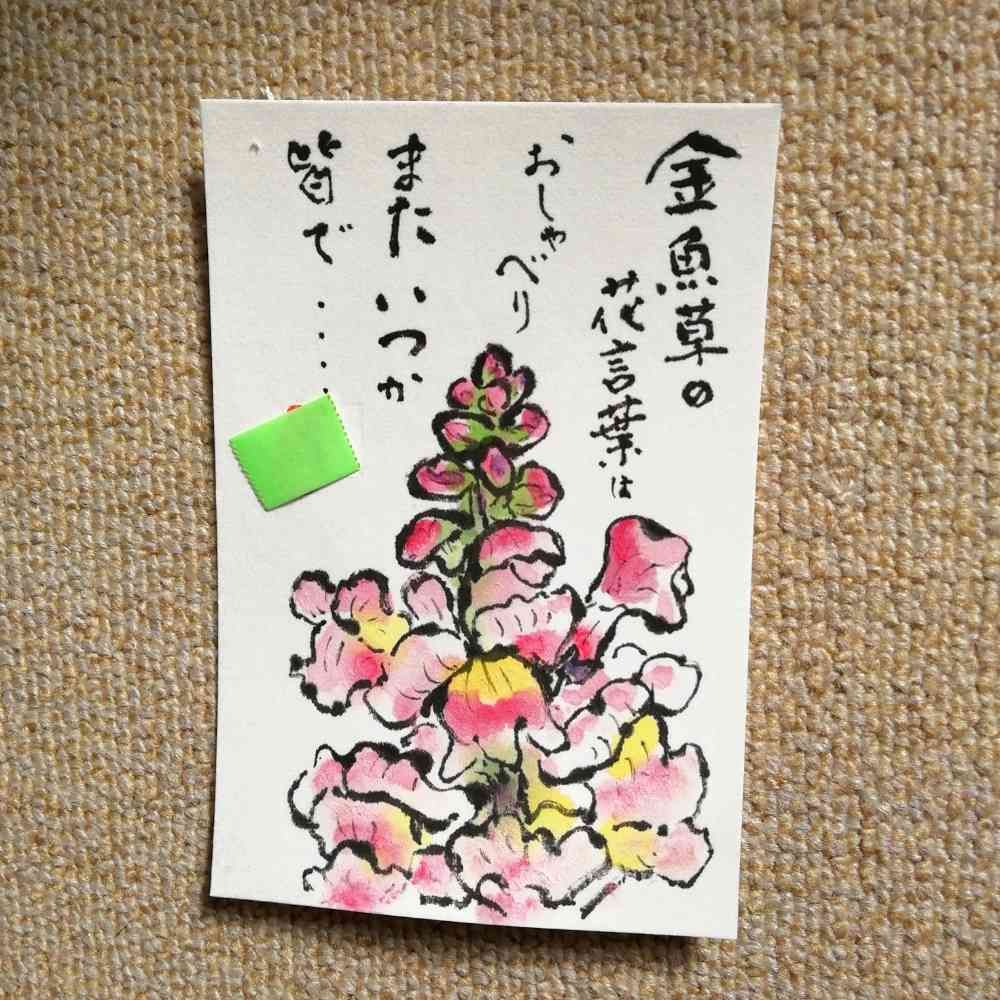 金魚草の
花言葉は
おしゃべり
またいつか
皆で・・・・